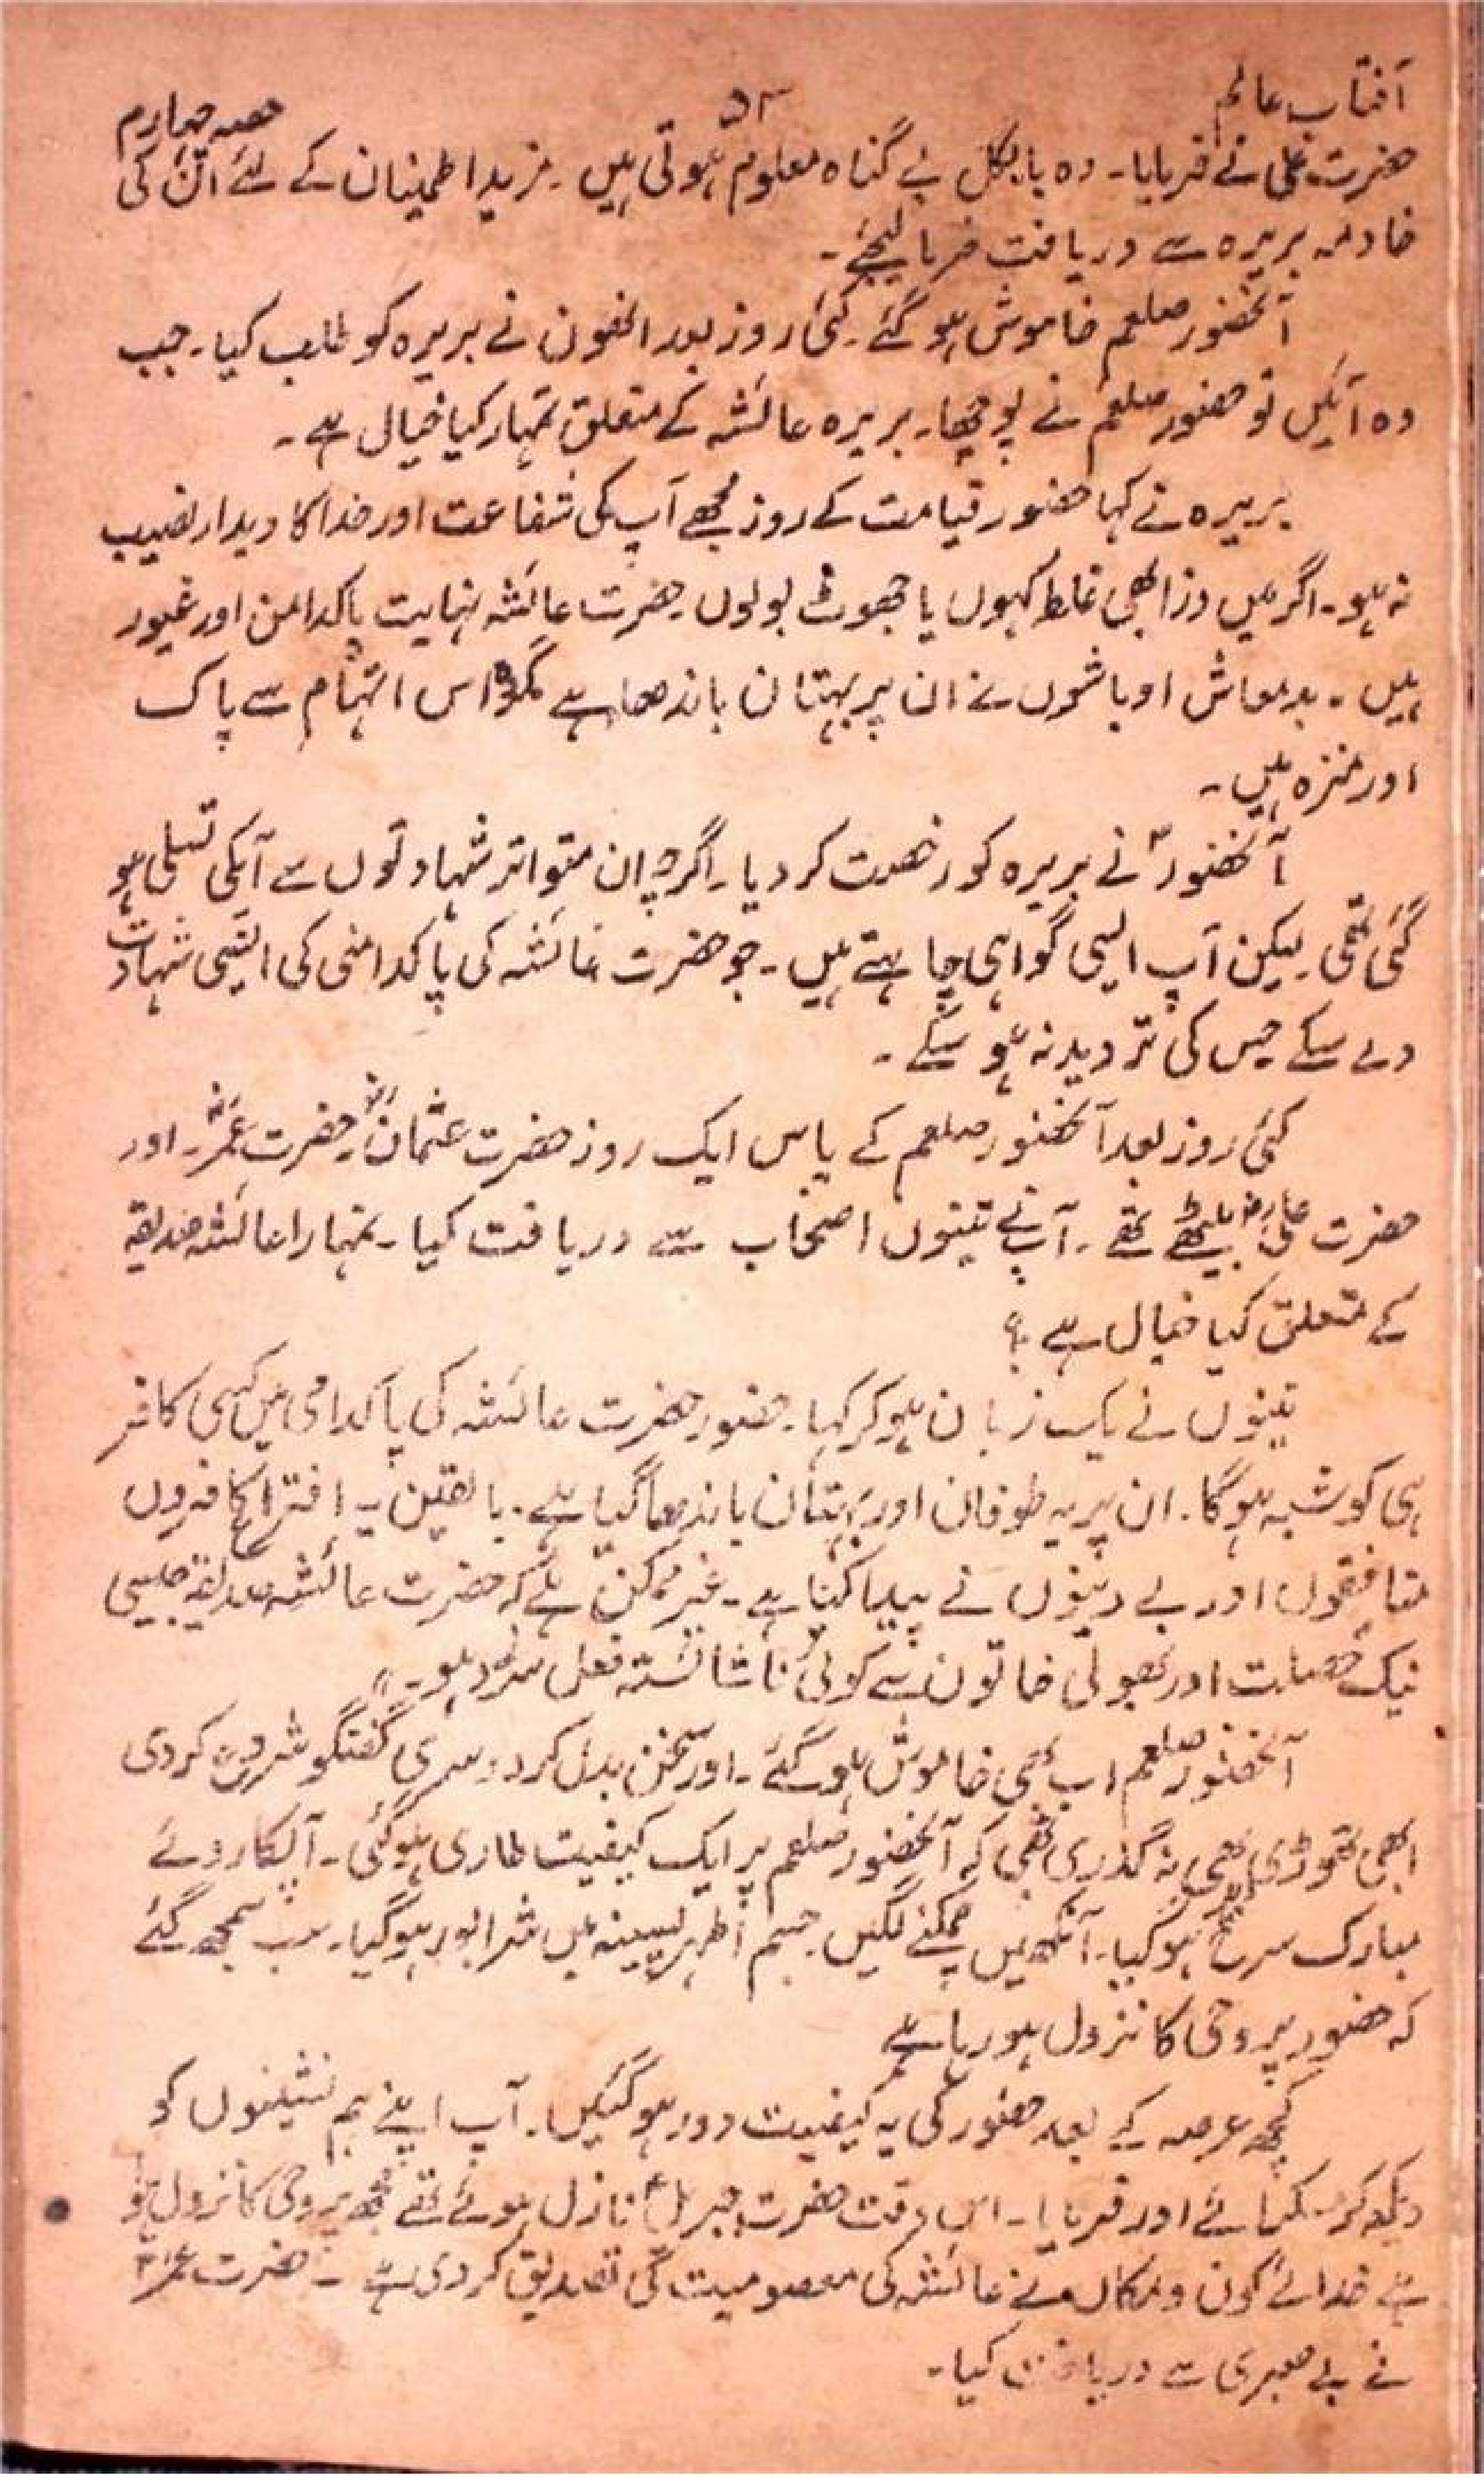 آفتاب عالم
۵۲
حصہ چہارم
حضرت علی نے فرمایا۔ وہ بالکل بے گناہ معلوم ہوتی ہیں۔ مزید اطمینان کے لئے ان کی
خادمہ بریرہ سے دریافت فرما لیجئے۔
آنحضور صلعم خاموش ہو گئے۔ کئی روز بعد انھون نے بریرہ کو طلب کیا۔ جب
وہ آئیں تو حضور صلعم نے پوچھا۔ بریرہ عائشہ کے متعلق تمہار کیا خیال ہے۔
بریرہ نے کہا حضور قیامت کے روز مجھے آپ کی شفاعت اور خدا کا دیدار نصیب
نہ ہو۔ اگر میں ذرا بھی غلط کہوں یا جھوٹ بولوں۔ حضرت عائشہ نہایت پاکدامن اور غیور
ہیں۔ بدمعاش اوباشوں نے ان پر بہتان باندھا ہے مگر وہ اس اتہام سے پاک
اور منزہ ہیں۔
آنحضورؐ نے بریرہ کو رخصت کر دیا۔ اگرچہ ان متواتر شہادتوں سے آپکی تسلی ہو
گئی تھی۔ لیکن آپ ایسی گواہی چاہتے ہیں۔ جو حضرت عائشہ کی پاکدامنی کی ایسی شہادت
دے سکے جس کی تردید نہ ہو سکے۔
کئی روز بعد آنحضور صلعم کے پاس ایک روز حضرت عثمانؓ۔ حضرت عمرؓ۔ اور
حضرت علیؓ بیٹھے تھے۔ آپ نے تینوں اصحاب سے دریافت کیا۔ تمہارا عائشہ صدیقہ
کے متعلق کیا خیال ہے؟
تینوں نے یک زبان ہو کر کہا۔ حضور حضرت عائشہ کی پاکدامنی میں کسی کافر
ہی کو شبہ ہوگا۔ ان پر یہ طوفان اور بہتان باندھا گیا ہے۔ بالقین یہ افترا کافروں
منافقوں اور بے دینوں نے پیدا کیا ہے۔ غیر ممکن ہے کہ حضرت عائشہ صدیقہ جیسی
نیک خصلت اور بھولی خاتون سے کوئی ناشائستہ فعل سرزد ہو۔"
آنحضور صلعم اب بھی خاموش ہو گئے۔ اور سخن بدل کر دوسری گفتگو شروع کر دی
ابھی تھوڑی بھی نہ گذری تھی کہ آنحضور صلعم پر ایک کیفیت طاری ہو گئی۔ آپکا روئے
مبارک سرخ ہو گیا۔ آنکھیں چمکنے لگیں۔ جسم اطہر پسینہ میں شرابور ہو گیا۔ سب سمجھ گئے
کہ حضور پر وحی کا نزول ہو رہا ہے
کچھ عرصہ کے بعد حضور کی یہ کیفیت دور ہو گئیں۔ آپ اپنے ہم نشینوں کو
دیکھ کر مسکرائے اور فرمایا۔ اس وقت حضرت جبرئیل نازل ہوئے تھے مجھ پر وحی کا نزول ہوا
ہے خدائے کون و مکاں نے عائشہ کی معصومیت کی تصدیق کر دی ہے۔ حضرت عمرؓ
نے بے صبری سے دریافت کیا۔